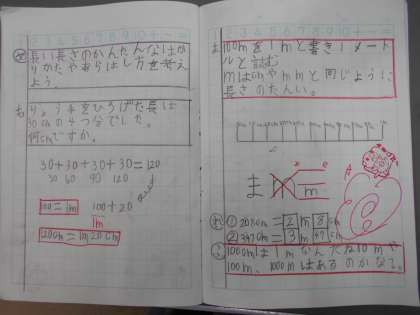 長い長さのかんたんなはか
りかたやあらはし方を考え
よう。
りょう手をひろげた長さは
30cmの4つ分でした。
何cmですか。
30+30+30+30=120
30 60 90 120
100=1m 100+20
1m
120cm=1m20cm
100cmを1mと書き1メート
ルと読む
mはcmやmmと同じように
長さのたんい。
ま m
① 208cm=2m8cm
② 347cm=3m47cm
100cmは1mなんだな10mや
100m、1000mはあるのかな?